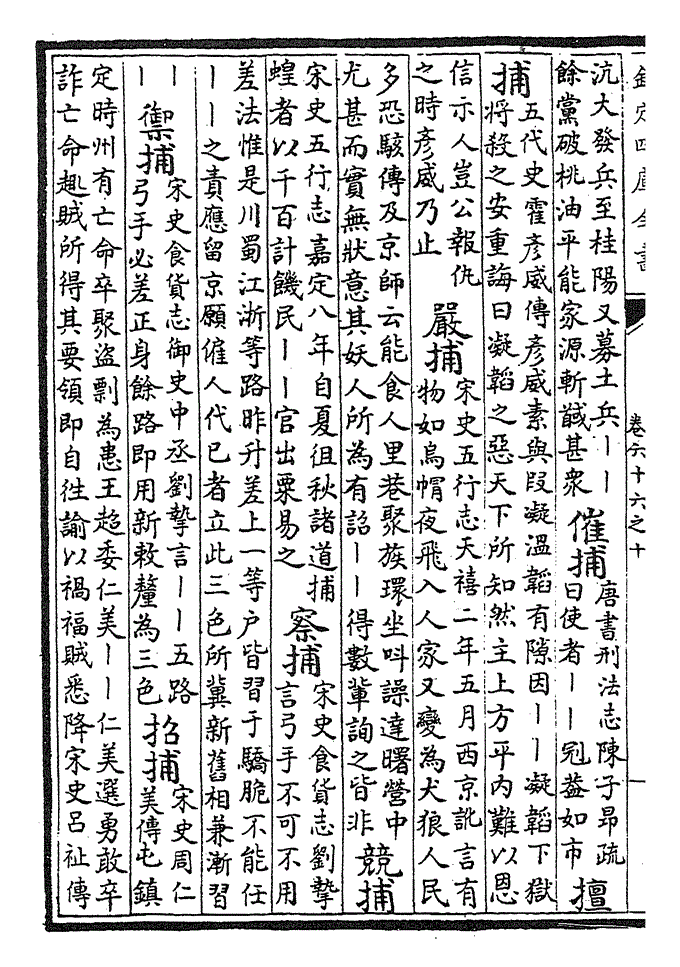 欽定四庫全書
卷六十六之十
沆大發兵至桂陽又募土兵丨丨
餘黨破桃油平能家源斬馘甚衆
催捕
唐書刑法志陳子昂疏
曰使者丨丨冠蓋如市
擅
捕
五代史霍彦威傳彦威素與段凝溫韜有隙因丨丨凝韜下獄
將殺之安重誨曰凝韜之惡天下所知然主上方平内難以恩
信示人豈公報仇
之時彦威乃止
嚴捕
宋史五行志天禧二年五月西京訛言有
物如烏帽夜飛入人家又變為犬狼人民
多恐駭傳及京師云能食人里巷聚族環坐叫譟達曙營中
尤甚而實無狀意其妖人所為有詔丨丨得數輩詢之皆非
競捕
宋史五行志嘉定八年自夏徂秋諸道捕
蝗者以千百計饑民丨丨官出粟易之
察捕
宋史食貨志劉摯
言弓手不可不用
差法惟是川蜀江浙等路昨升差上一等户皆習于驕脆不能任
丨丨之責應留京願僱人代已者立此三色所冀新舊相兼漸習
丨
丨
禦捕
宋史食貨志御史中丞劉摯言丨丨五路
弓手必差正身餘路即用新敕釐為三色
招捕
宋史周仁
美傳屯鎮
定時州有亡命卒聚盜剽為患王超委仁美丨丨仁美選勇敢卒
詐亡命趣賊所得其要領即自徃諭以禍福賊悉降宋史呂祉傳